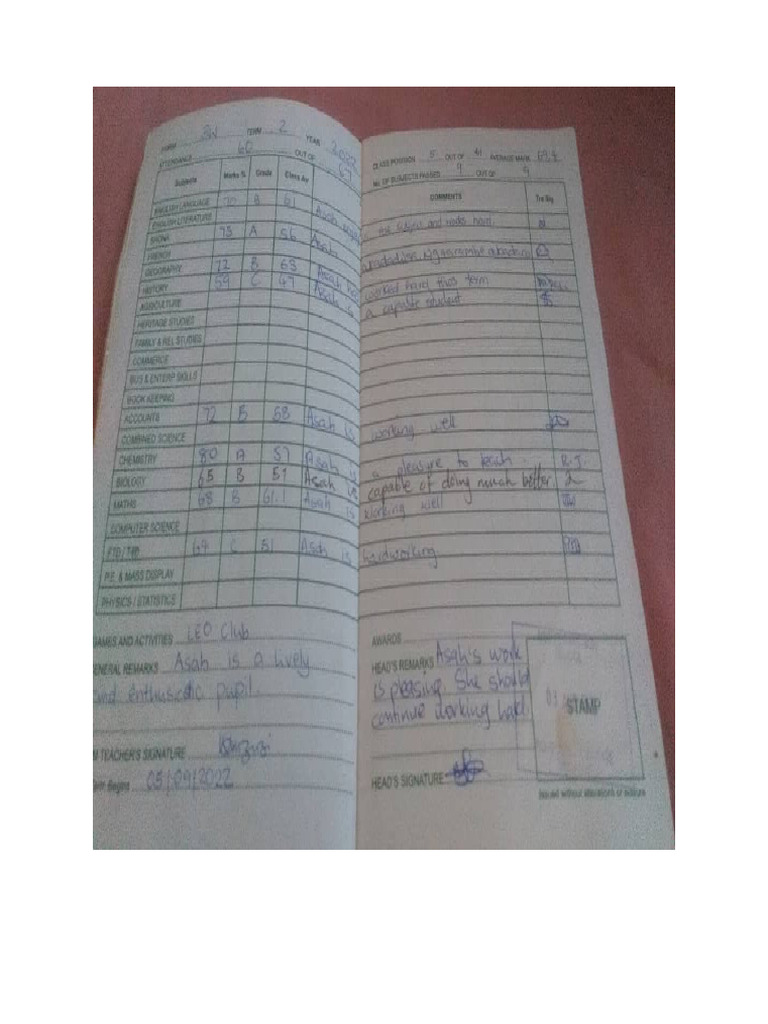 FORM 3W TERM 2 YEAR 2022
ATTENDANCE 60 OUT OF 67
CLASS POSITION 5 OUT OF 41 AVERAGE MARK
No. OF SUBJECTS PASSED 9 OUT OF 9
Subjects Marks % Grade Class Av COMMENTS Trs Sig
ENGLISH LANGUAGE 70 B 61 Asah the subject and works hard.
ENGLISH LITERATURE
SHONA 75 A 56 Asah
FRENCH
GEOGRAPHY 72 B 63 Asah has worked hard this term
HISTORY 59 C 47 Asah is a capable student
AGRICULTURE
HERITAGE STUDIES
FAMILY & REL STUDIES
COMMERCE
BUS & ENTERP SKILLS
BOOK KEEPING
ACCOUNTS 72 B 68 Asah is working well
COMBINED SCIENCE
CHEMISTRY 80 A 57 Asah is a pleasure to teach. R.J.
BIOLOGY 65 B 51 Asah is capable of doing much better.
MATHS 68 B 61.1 Asah is working well
COMPUTER SCIENCE
64 C 51 Asah is hardworking
P.E. & MASS DISPLAY
PHYSICS / STATISTICS
GAMES AND ACTIVITIES LEO Club
GENERAL REMARKS Asah is a lively
and enthusiastic pupil.
TEACHER'S SIGNATURE
Begins 05/09/2022
AWARDS
HEAD'S REMARKS Asah's work
is pleasing. She should
continue working hard
STAMP
HEAD'S SIGNATURE
Issued without alterations or erasure